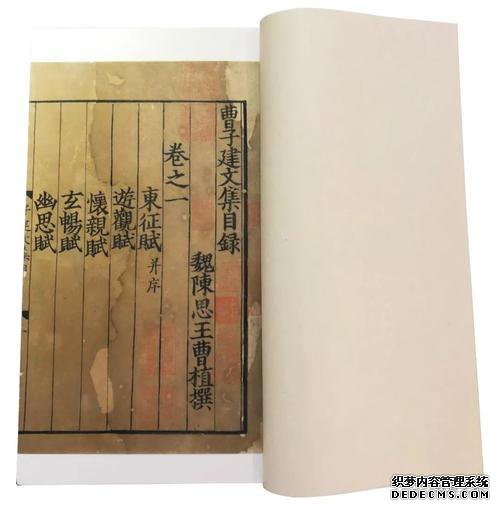 曹子建文集目録
魏陳思王曹植撰
卷之一
東征賦并序
遊觀賦
懷親賦
玄暢賦
幽思賦
织梦内容管理系统
DEDECMS.COM